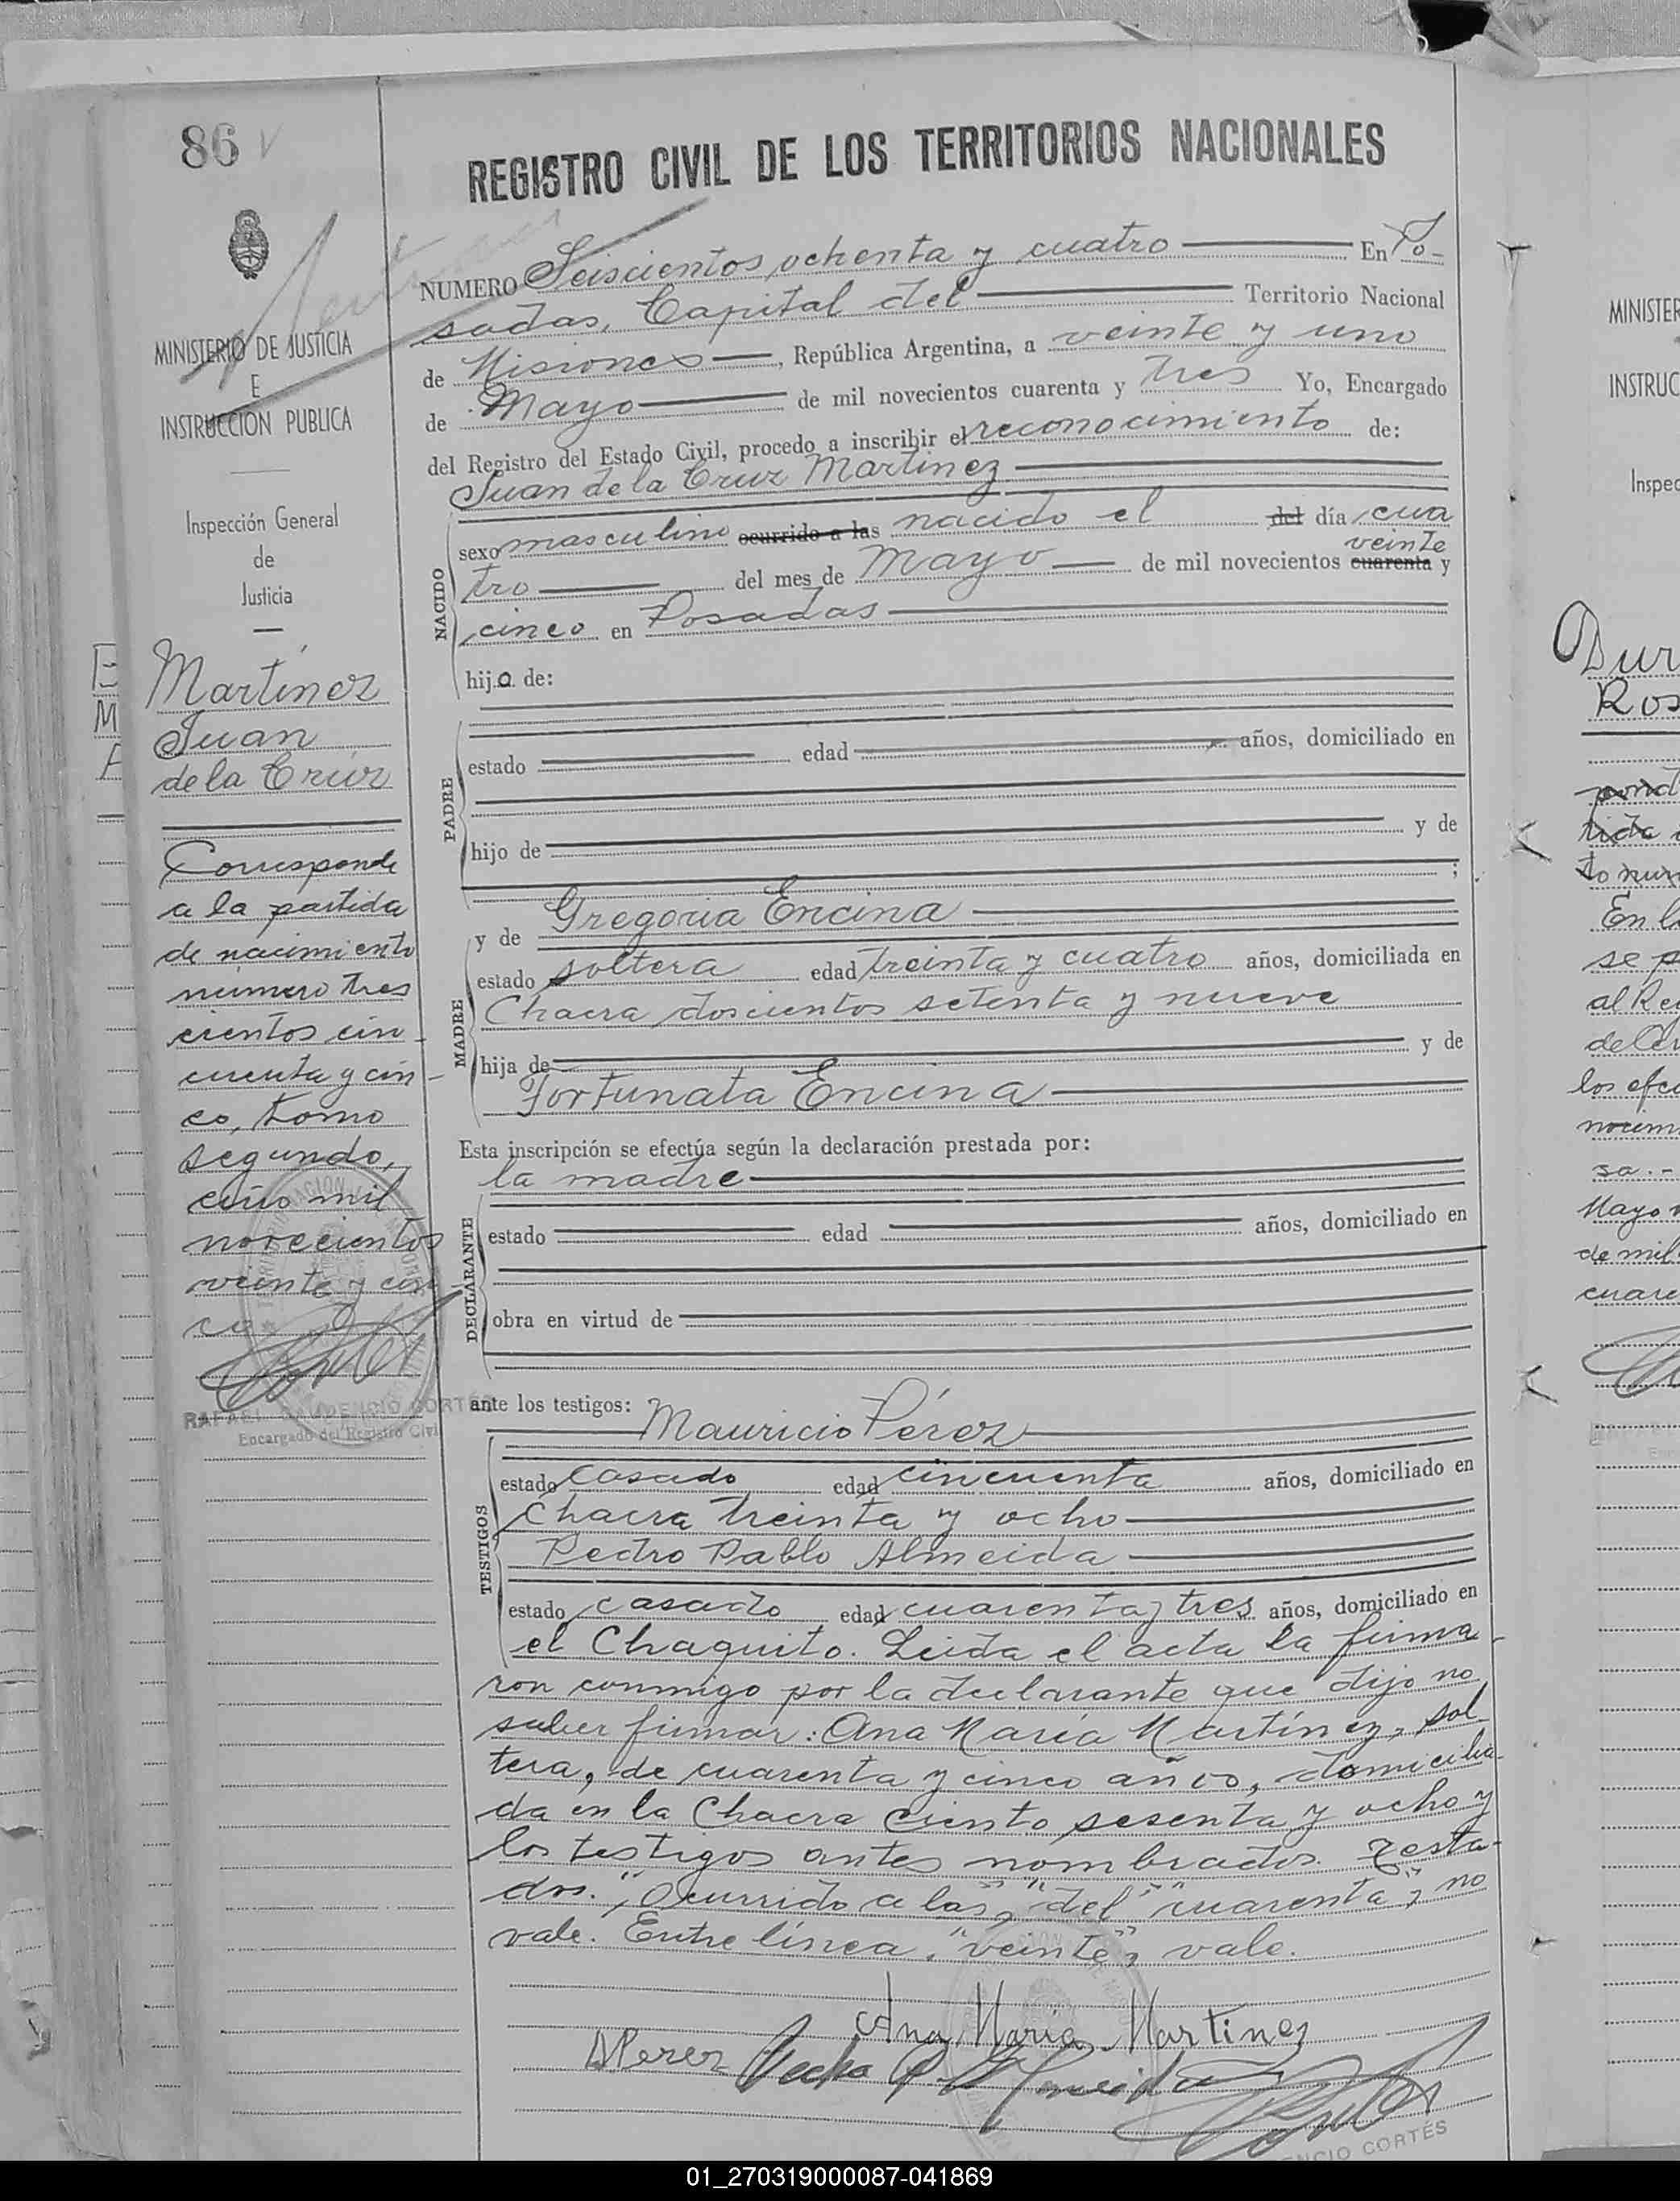 86
REGISTRO CIVIL DE LOS TERRITORIOS NACIONALES
NUMERO Seiscientos ochenta y cuatro En Po-
sadas, Capital del Territorio Nacional
de Misiones, República Argentina, a veinte y uno
de Mayo de mil novecientos cuarenta y tres Yo, Encargado
del Registro del Estado Civil, procedo a inscribir el reconocimiento de:
Juan de la Cruz Martinez
NACIDO
sexo masculino ocurrido a las nacido el del día cua
veinte
tro del mes de Mayo de mil novecientos cuarenta y
cinco en Posadas
hijo de:
PADRE
estado edad años, domiciliado en
hijo de y de
;
MADRE
y de Gregoria Encina
estado soltera edad treinta y cuatro años, domiciliada en
Chacra doscientos setenta y nueve
hija de y de
Fortunata Encina
Esta inscripción se efectúa según la declaración prestada por:
la madre
DECLARANTE
estado edad años, domiciliado en
obra en virtud de
ante los testigos: Mauricio Pérez
TESTIGOS
estado casado edad cincuenta años, domiciliado en
Chacra treinta y ocho
Pedro Pablo Almeida
estado casado edad cuarenta y tres años, domiciliado en
el Chaquito. Leida el acta la firma
ron conmigo por la declarante que dijo no
saber firmar: Ana María Martínez, sol
tera, de cuarenta y cinco años, domicilia-
da en la Chacra ciento sesenta y ocho y
los testigos antes nombrados. Testa-
dos. "Ocurrido a las", "del" "cuarenta", no
vale. Entre línea, "veinte", vale.
Ana María Martinez
MPerez Pedro P. Almeida
ENCIO CORTÉS
MINISTERIO DE JUSTICIA
E
INSTRUCCION PUBLICA
Inspección General
de
Justicia
Martínez
Juan
de la Cruz
Corresponde
a la partida
de nacimiento
número tres
cientos cin
cuenta y cin-
co, tomo
segundo,
año mil
novecientos
veinte y cin-
co.
RAFAEL GAUDENCIO CORTÉS
Encargado del Registro Civil
E
M
MINISTER
INSTRUC
Inspec
Dur
Ros
En l
se p
al Re
los efec
sa.-
Mayo
de mil
01_270319000087-041869